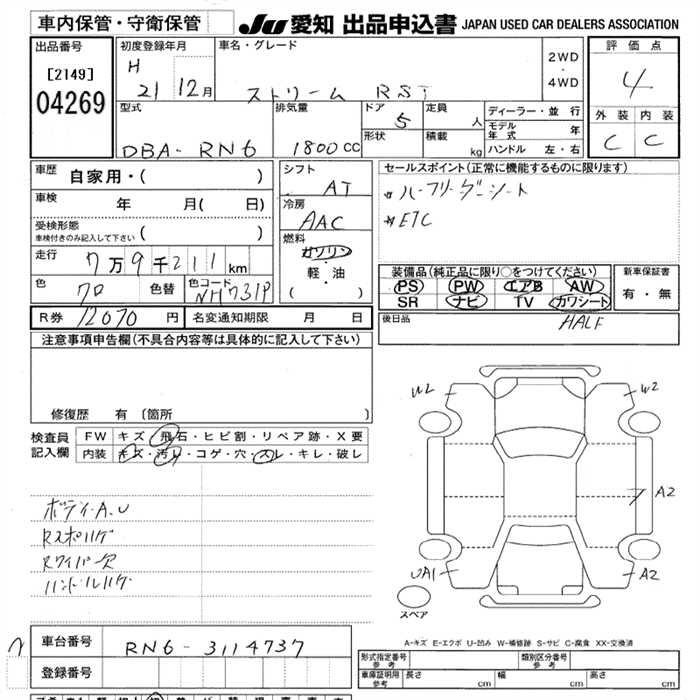 車内保管・守衛保管
JU 愛知 出品申込書 JAPAN USED CAR DEALERS ASSOCIATION
出品番号
[2149]
04269
初度登録年月
H 21 12月
車名・グレード
ストリーム RST
2WD
・
4WD
評価点
4
外装 内装
C C
型式
DBA-RN6
排気量
1800cc
ドア
5
形状
定員
人
積載
kg
ディーラー・並行
モデル年式 年
ハンドル 左・右
車歴 自家用・( )
車検 年 月( 日)
受検形態
車検付きのみ記入して下さい ( )
走行 7万9千211km
色 クロ 色替 色コード NH731P
シフト
AT
冷房
AAC
燃料
ガソリン
軽・油
( )
セールスポイント(正常に機能するものに限ります)
ハーフリーダーシート
ETC
装備品(純正品に限り○をつけてください)
PS PW エアB AW
SR ナビ TV カワシート
新車保証書
有・無
R券 12070 円 名変通知期限 月 日
後日品
HALF
注意事項申告欄(不具合内容等は具体的に記入して下さい)
修復歴 有 〔箇所 〕
検査員記入欄
FW キズ・飛石・ヒビ割・リペア跡・X要
内装 キズ・汚れ・コゲ・穴・スレ・キレ・破し
ボディA.U
Rスポハゲ
Rワイパー欠
ハンドルハゲ
W2
W2
A2
UA1
A2
スペア
A-キズ E-エクボ U-凹み W-補修跡 S-サビ C-腐食 XX-交換済
車台番号 RN6-3114737
登録番号
形式指定番号
参考
類別区分番号
参考
車庫証明用
参考
長さ cm 幅 cm 高さ cm